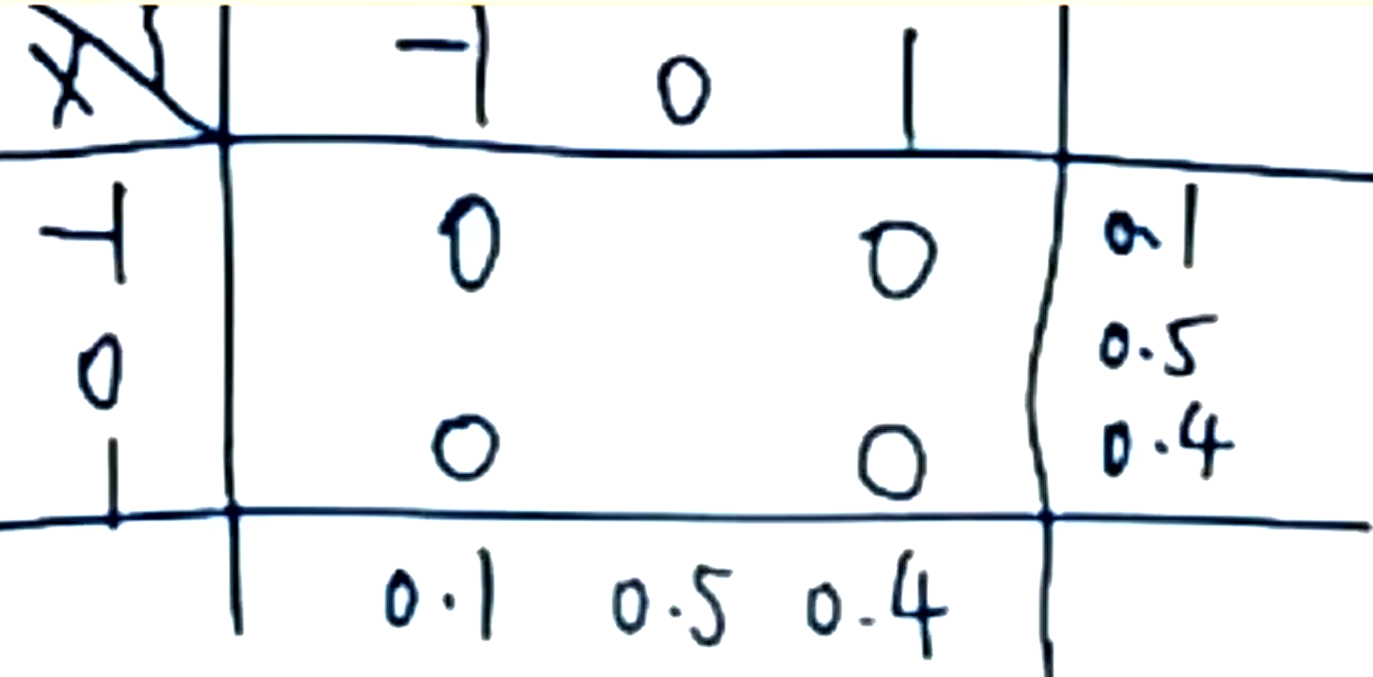 X Y -1 0 1
-1 0 0 0.1
0 0.5
1 0 0 0.4
0.1 0.5 0.4